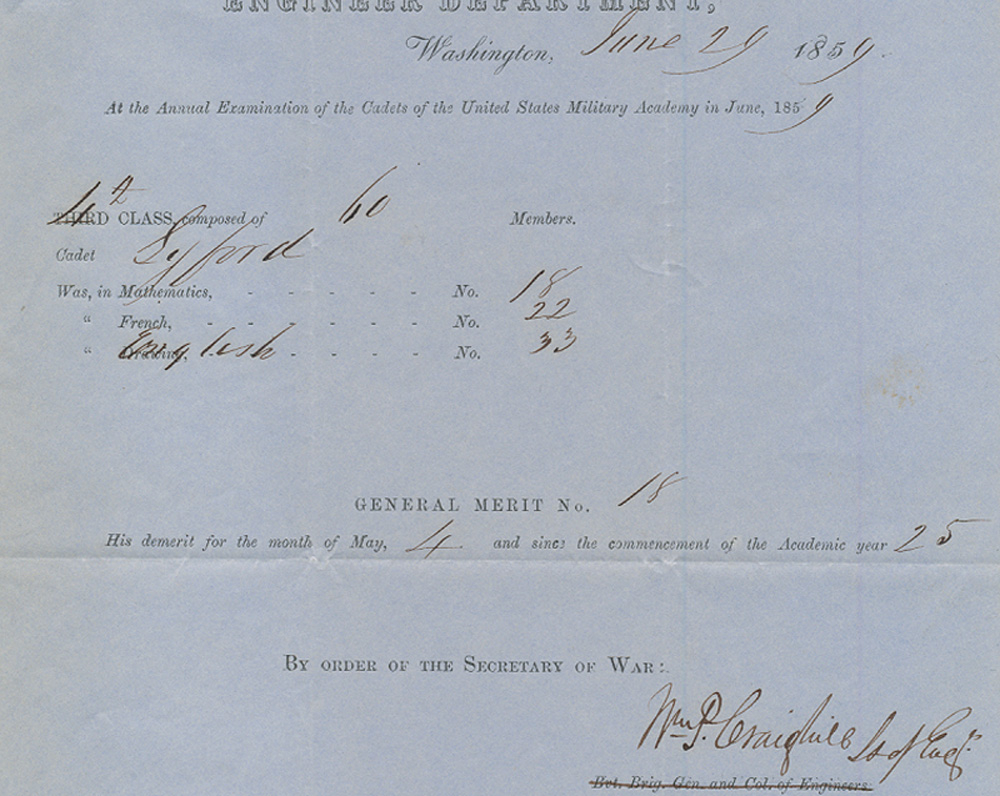 ENGINEER DEPARTMENT,
Washington, June 29 1859.
At the Annual Examination of the Cadets of the United States Military Academy in June, 1859
4th THIRD CLASS, composed of 60 Members.
Cadet Lyford
Was, in Mathematics, - - - - - No. 18
" French, - - - - - - No. 22
" Drawing, English - - - - No. 33
GENERAL MERIT No. 18
His demerit for the month of May, 4 and since the commencement of the Academic year 25
BY ORDER OF THE SECRETARY OF WAR:
Wm. P. Craighill Lt of Engrs
Bvt. Brig. Gen. and Col. of Engineers.